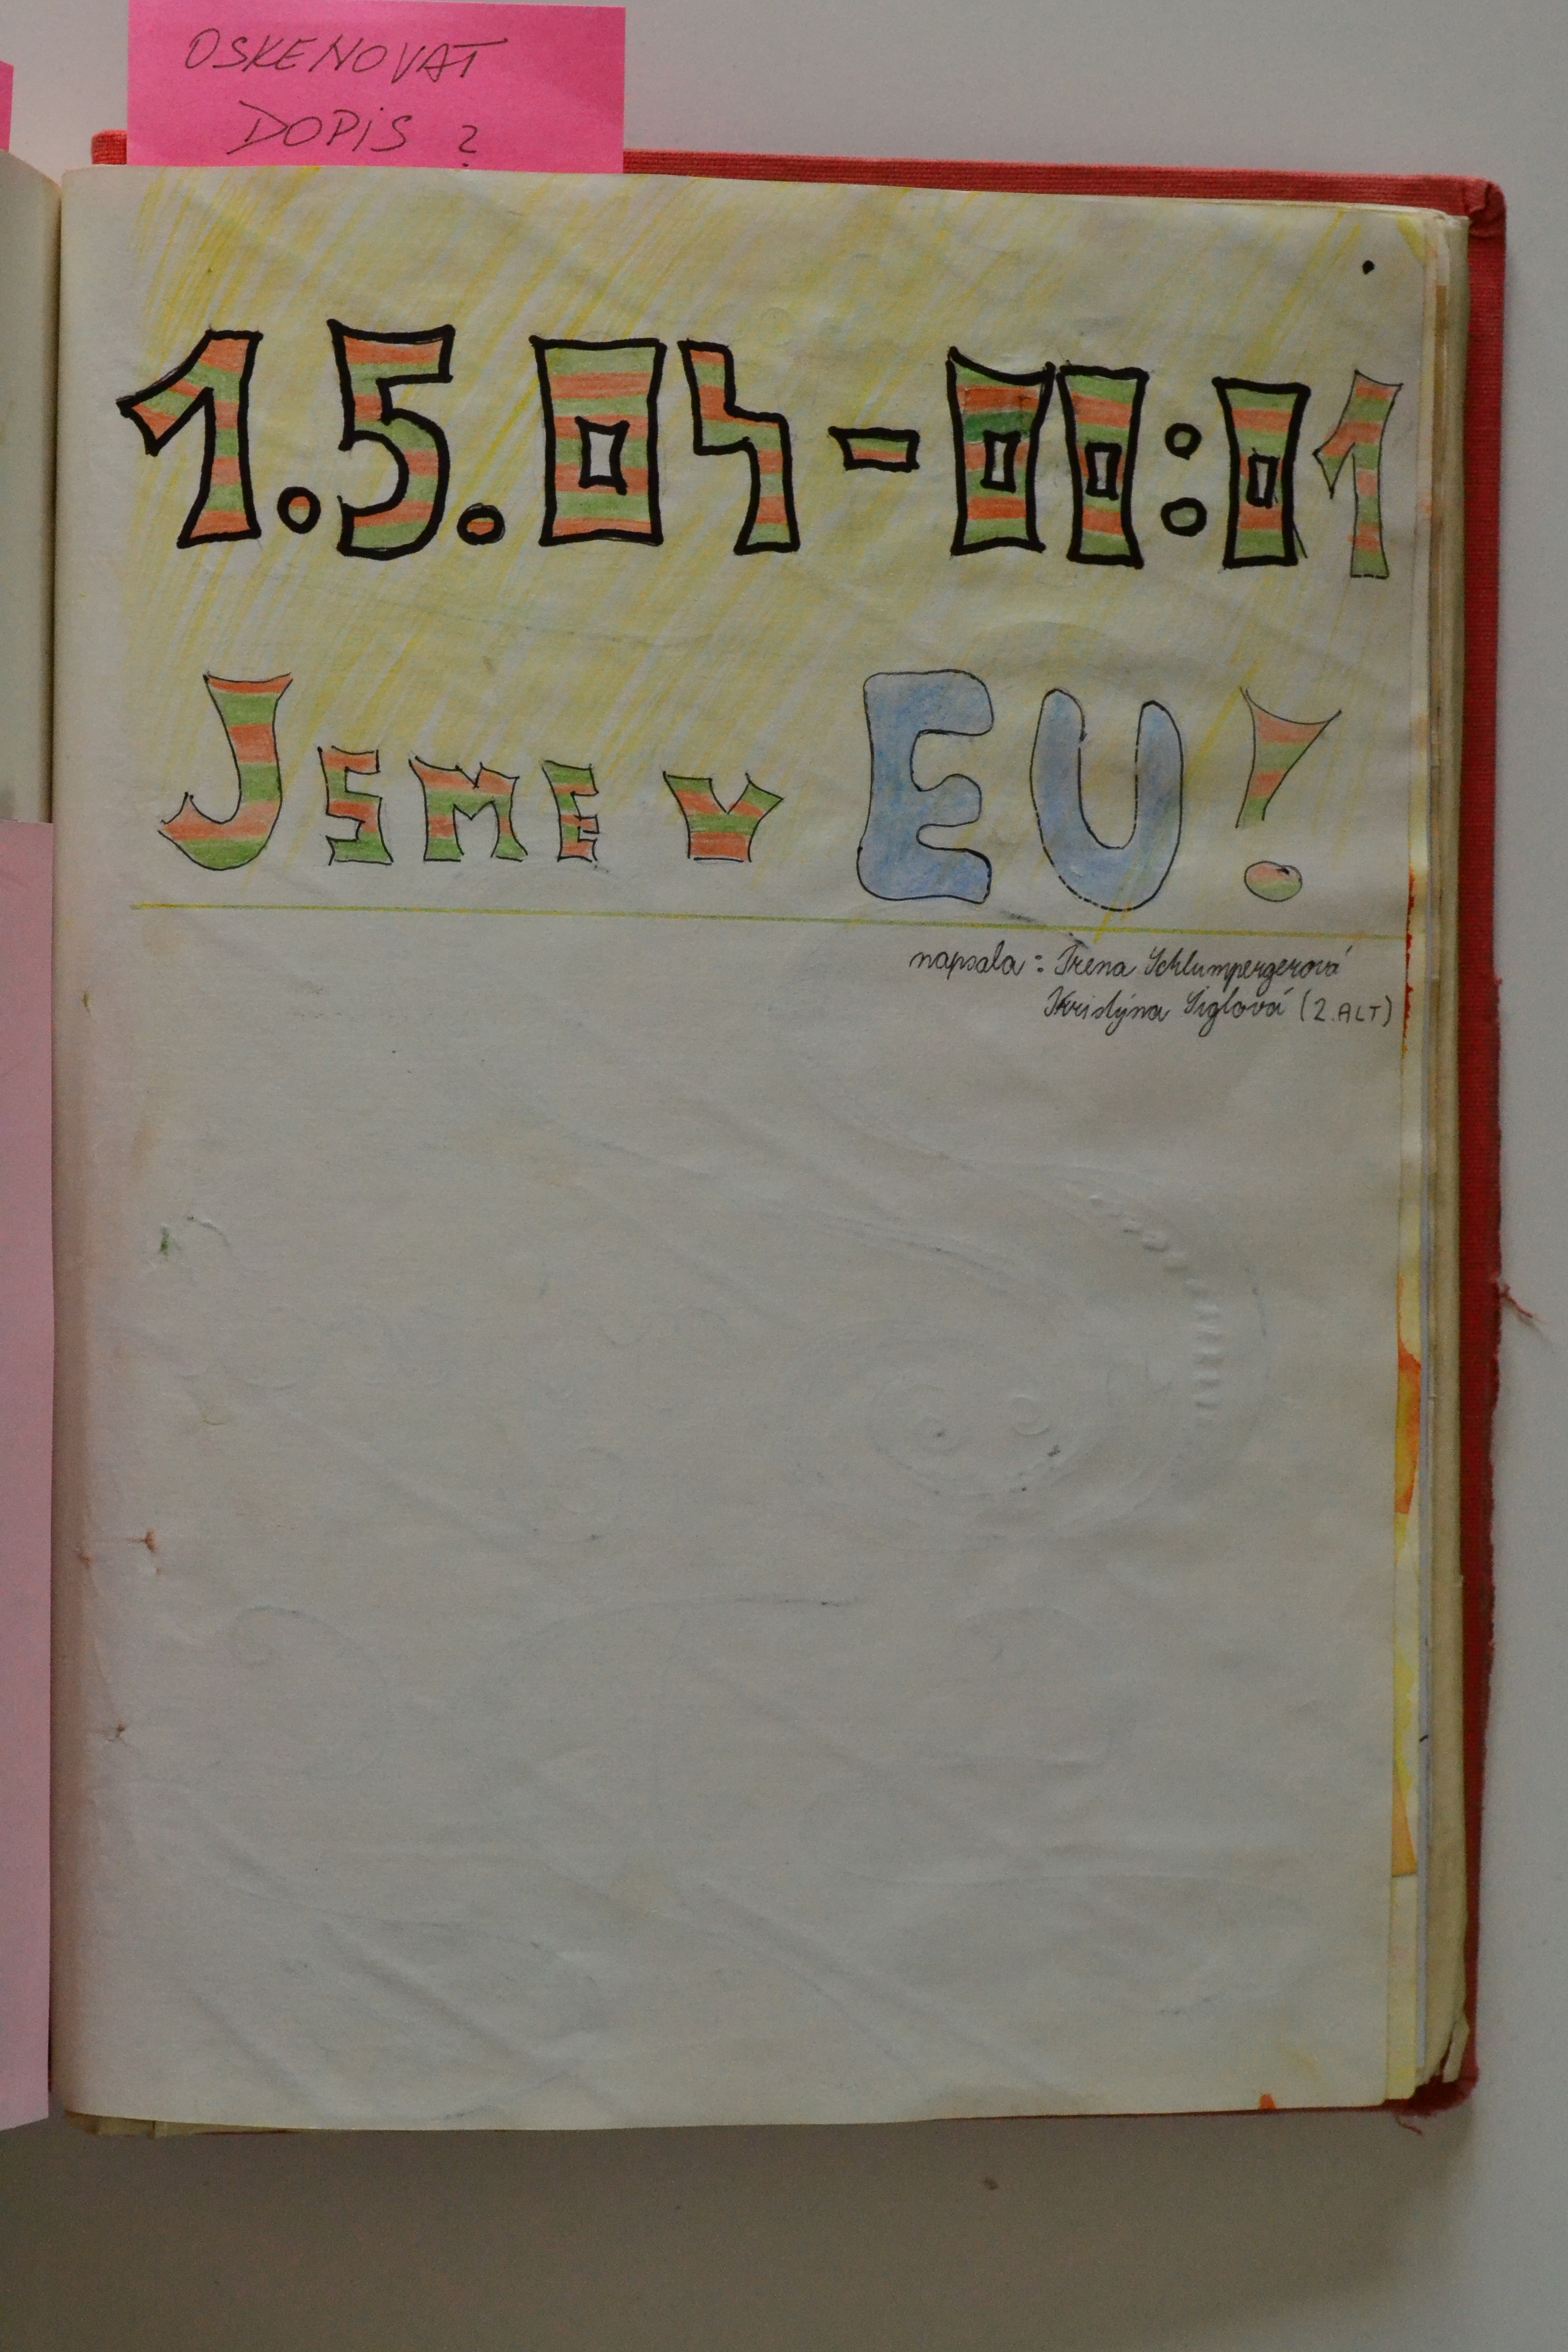 OSKENOVAT
DOPIS ?
1.5.04-00:01
JSME V EU!
napsala: Irena Schlumpergerová
Kristýna Síglová (2.ALT)